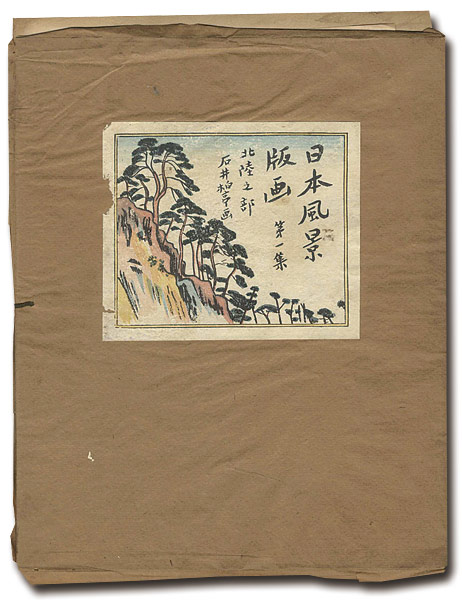 日本風景
版画 第一集
北陸之部
石井柏亭画